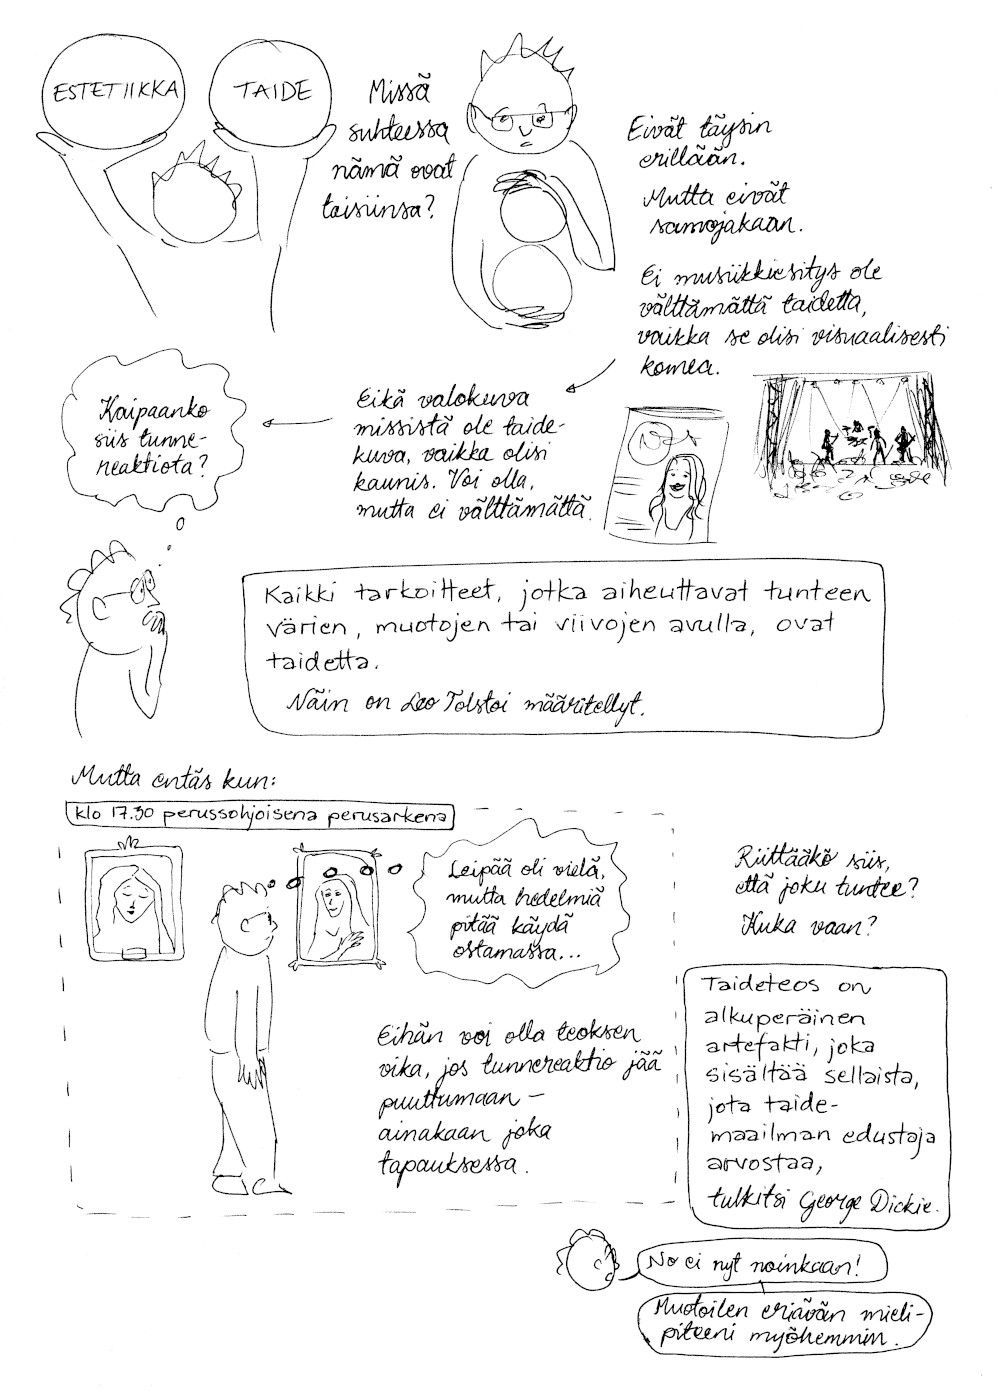 ESTETIIKKA
TAIDE
Missä
suhteessa
nämä ovat
toisiinsa?
Eivät täysin
erillään.
Mutta eivät
samojakaan.
Ei musiikkiesitys ole
välttämättä taidetta,
vaikka se olisi visuaalisesti
komea.
Eikä valokuva
missistä ole taide-
kuva, vaikka olisi
kaunis. Voi olla,
mutta ei välttämättä.
Kaipaanko
siis tunne-
reaktiota?
Kaikki tarkoitteet, jotka aiheuttavat tunteen
värien, muotojen tai viivojen avulla, ovat
taidetta.
Näin on Leo Tolstoi määritellyt.
Mutta entäs kun:
klo 17.30 perussohjoisena perusarkena
Leipää oli vielä,
mutta hedelmiä
pitää käydä
ostamassa...
Eihän voi olla teoksen
vika, jos tunnereaktio jää
puuttumaan –
ainakaan joka
tapauksessa.
Riittääkö siis,
että joku tuntee?
Kuka vaan?
Taideteos on
alkuperäinen
artefakti, joka
sisältää sellaista,
jota taide-
maailman edustaja
arvostaa,
tulkitsi George Dickie.
No ei nyt noinkaan!
Muotoilen eriävän mieli-
piteeni myöhemmin.